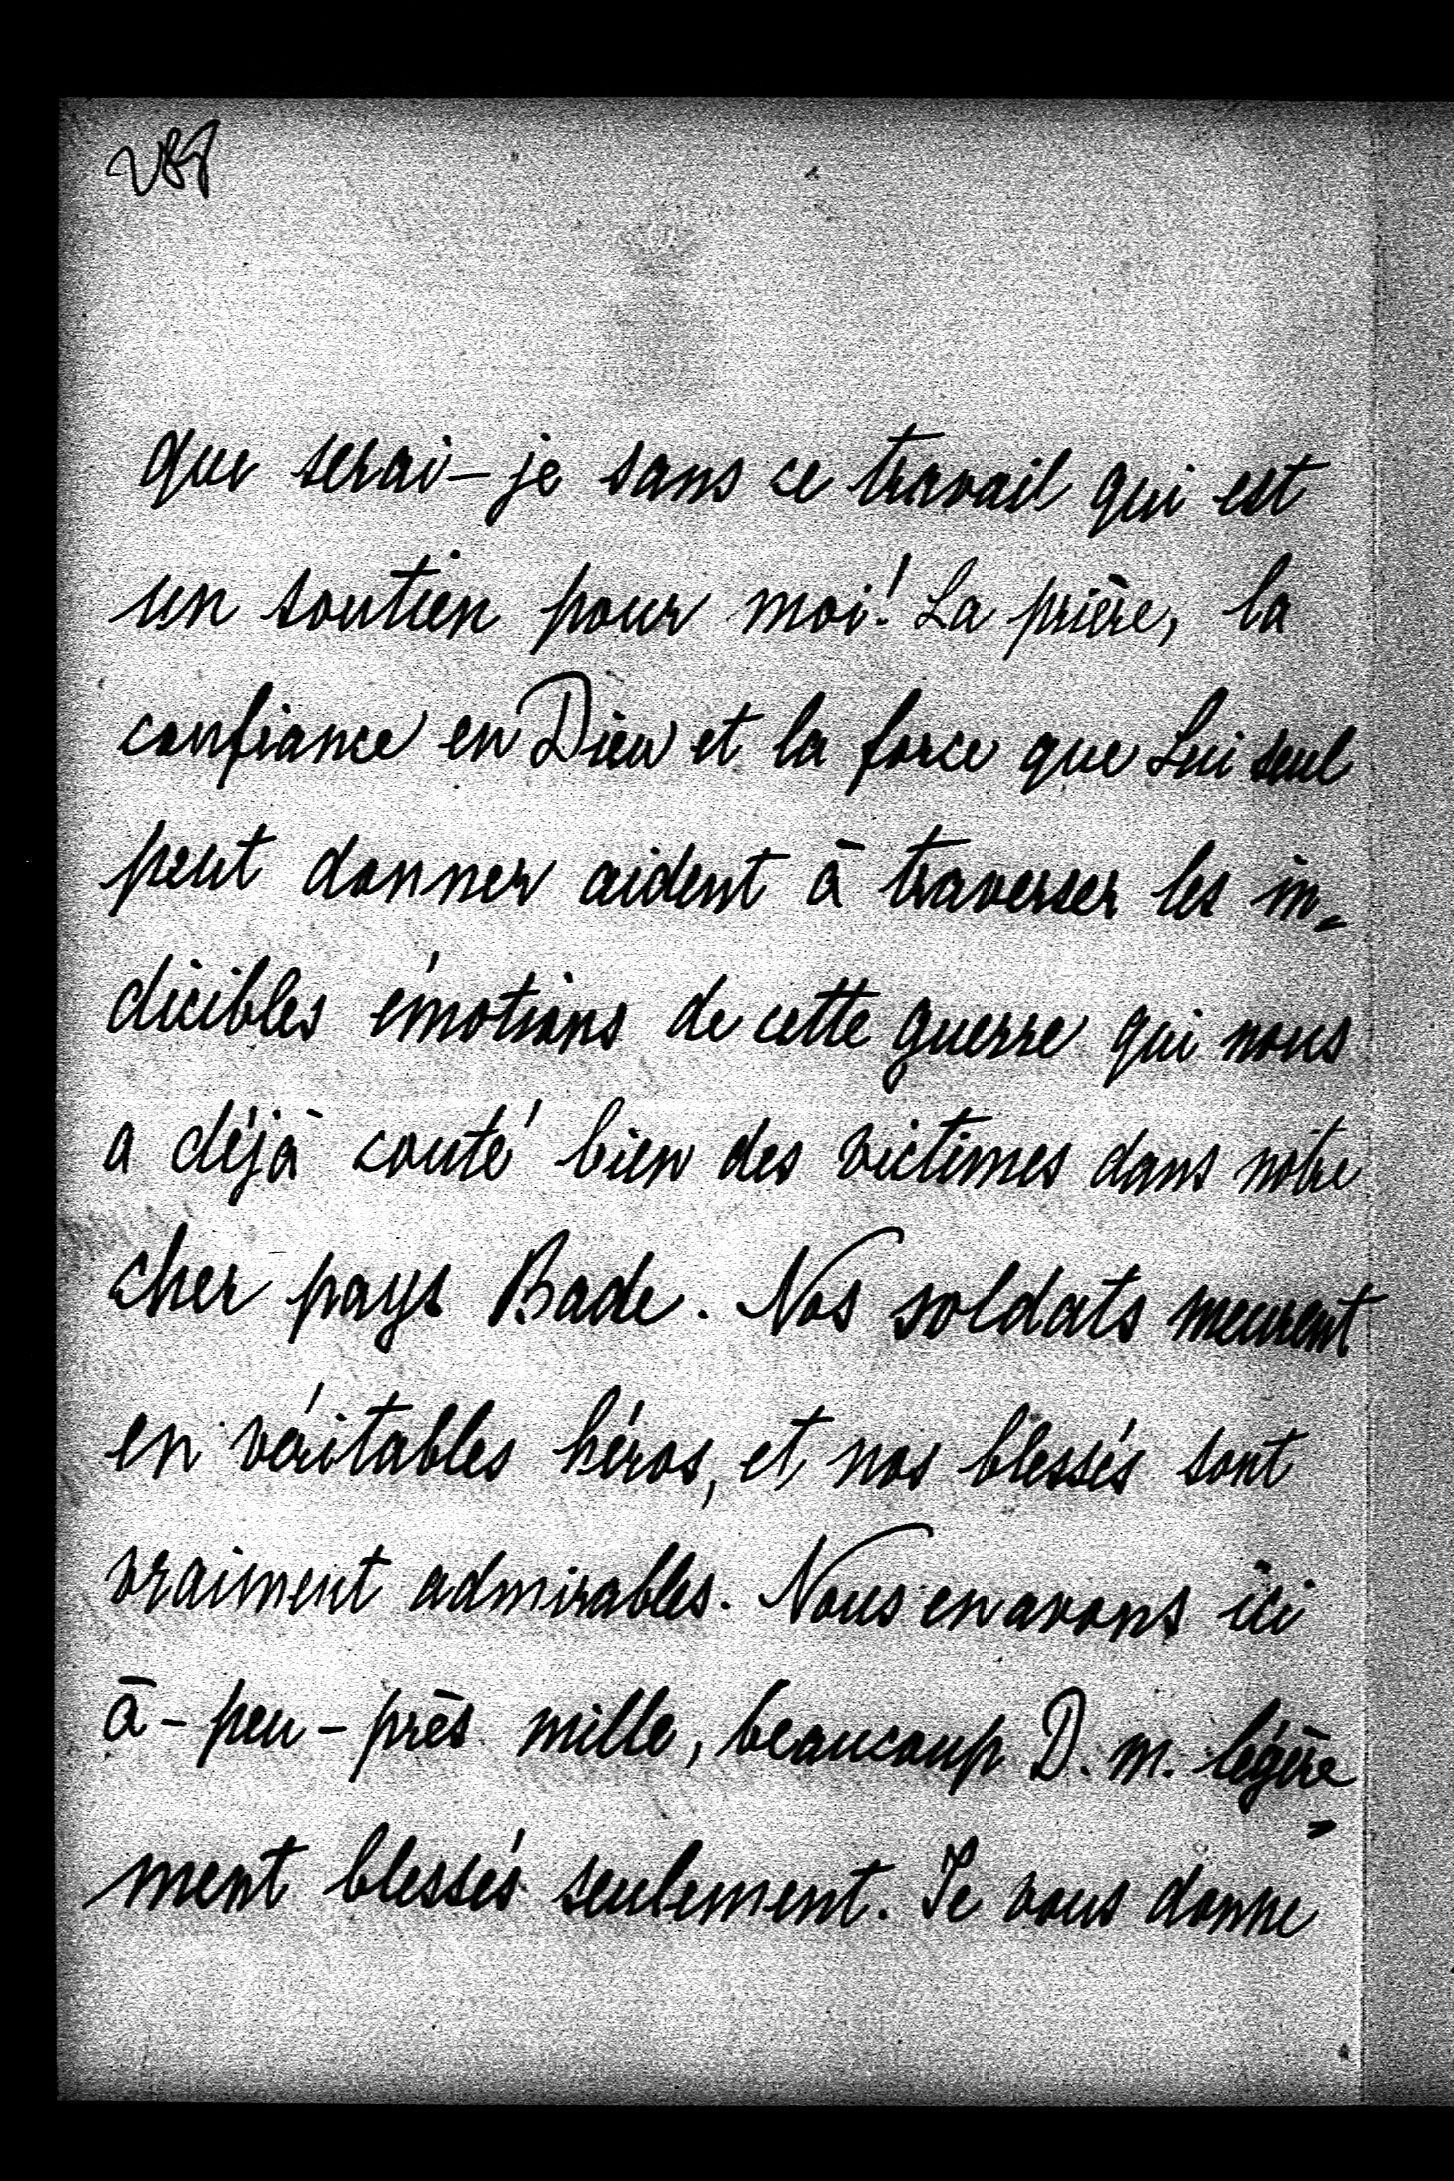 que serai-je sans ce travail qui est
un soutien pour moi! La prière, la
confiance en Dieu et la force que Lui seul
peut donner aident à traverser les in-
dicibles émotions de cette guerre qui nous
a déjà couté bien des victimes dans notre
cher pays Bade. Nos soldats meurent
en véritables héros, et nos blessés sont
vraiment admirables. Nous en avons ici
à-peu-près mille, beaucoup D. m. légère-
ment blessés seulement. Je vous donne